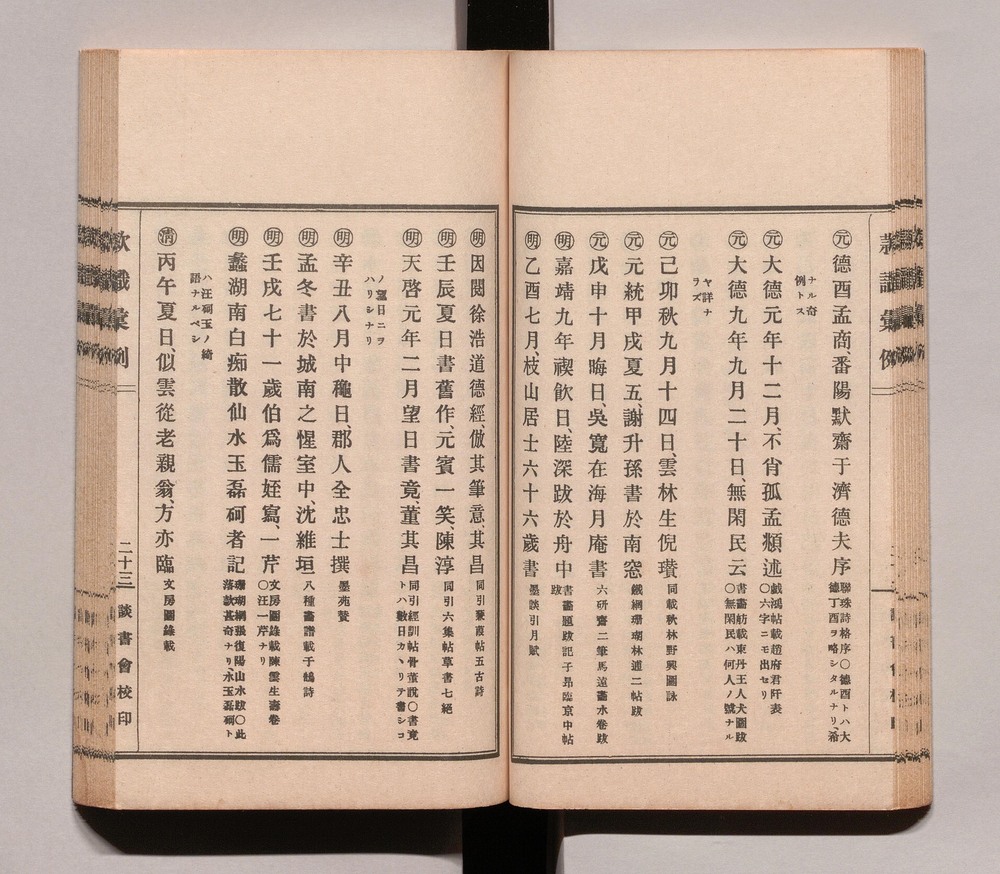 元 德酉孟商、番陽默齋于濟德夫序 聯珠詩格序〇德酉トハ大德丁酉ヲ略シタルナリ、希
ナル奇例トス
元 大德元年十二月、不肖孤孟頫述 戲鴻帖載趙府君阡表〇六字ニモ出セリ
元 大德九年九月二十日、無閑民云 書畫舫載東丹王人犬圖跋〇無閑民ハ何人ノ號ナル
ヤ詳ナラズ
元 己卯秋九月十四日、雲林生倪瓚 同載秋林野興圖詠
元 元統甲戌夏五、謝升孫書於南窓 鐵網珊瑚林逋二帖跋
元 戊申十月晦日、吳寬在海月庵書 六研齋二筆馬遠畫水卷跋
明 嘉靖九年禊飮日、陸深跋於舟中 書畫題跋記子昻臨京中帖跋
明 乙酉七月、枝山居士六十六歲書 墨談引月賦
明 因閱徐浩道德經、倣其筆意、其昌 同引蒹葭帖五古詩
明 壬辰夏日書舊作、元賓一笑、陳淳 同引六集帖草書七絕
明 天啓元年二月望日書竟、董其昌 同引經訓帖骨董說〇書竟トハ數日カヽリテ書シコ
ノ望日ニヲハリシナリ
明 辛丑八月中龝日、郡人全忠士撰 墨苑贊
明 孟冬書於城南之惺室中、沈維垣 八種畫譜載于鶴詩
明 壬戌七十一歲伯爲儒姪寫、一芹 文房圖錄載陳雲生壽卷〇汪一芹ナリ
明 蠡湖南白痴散仙水玉磊砢者記 珊瑚網張復陽山水跋〇此落款甚奇ナリ、水玉磊砢ト
ハ汪砢玉ノ綺語ナルベシ
淸 丙午夏日、似雲從老親翁、方亦臨 文房圖錄載
款識彙例
二十三 談書會校印